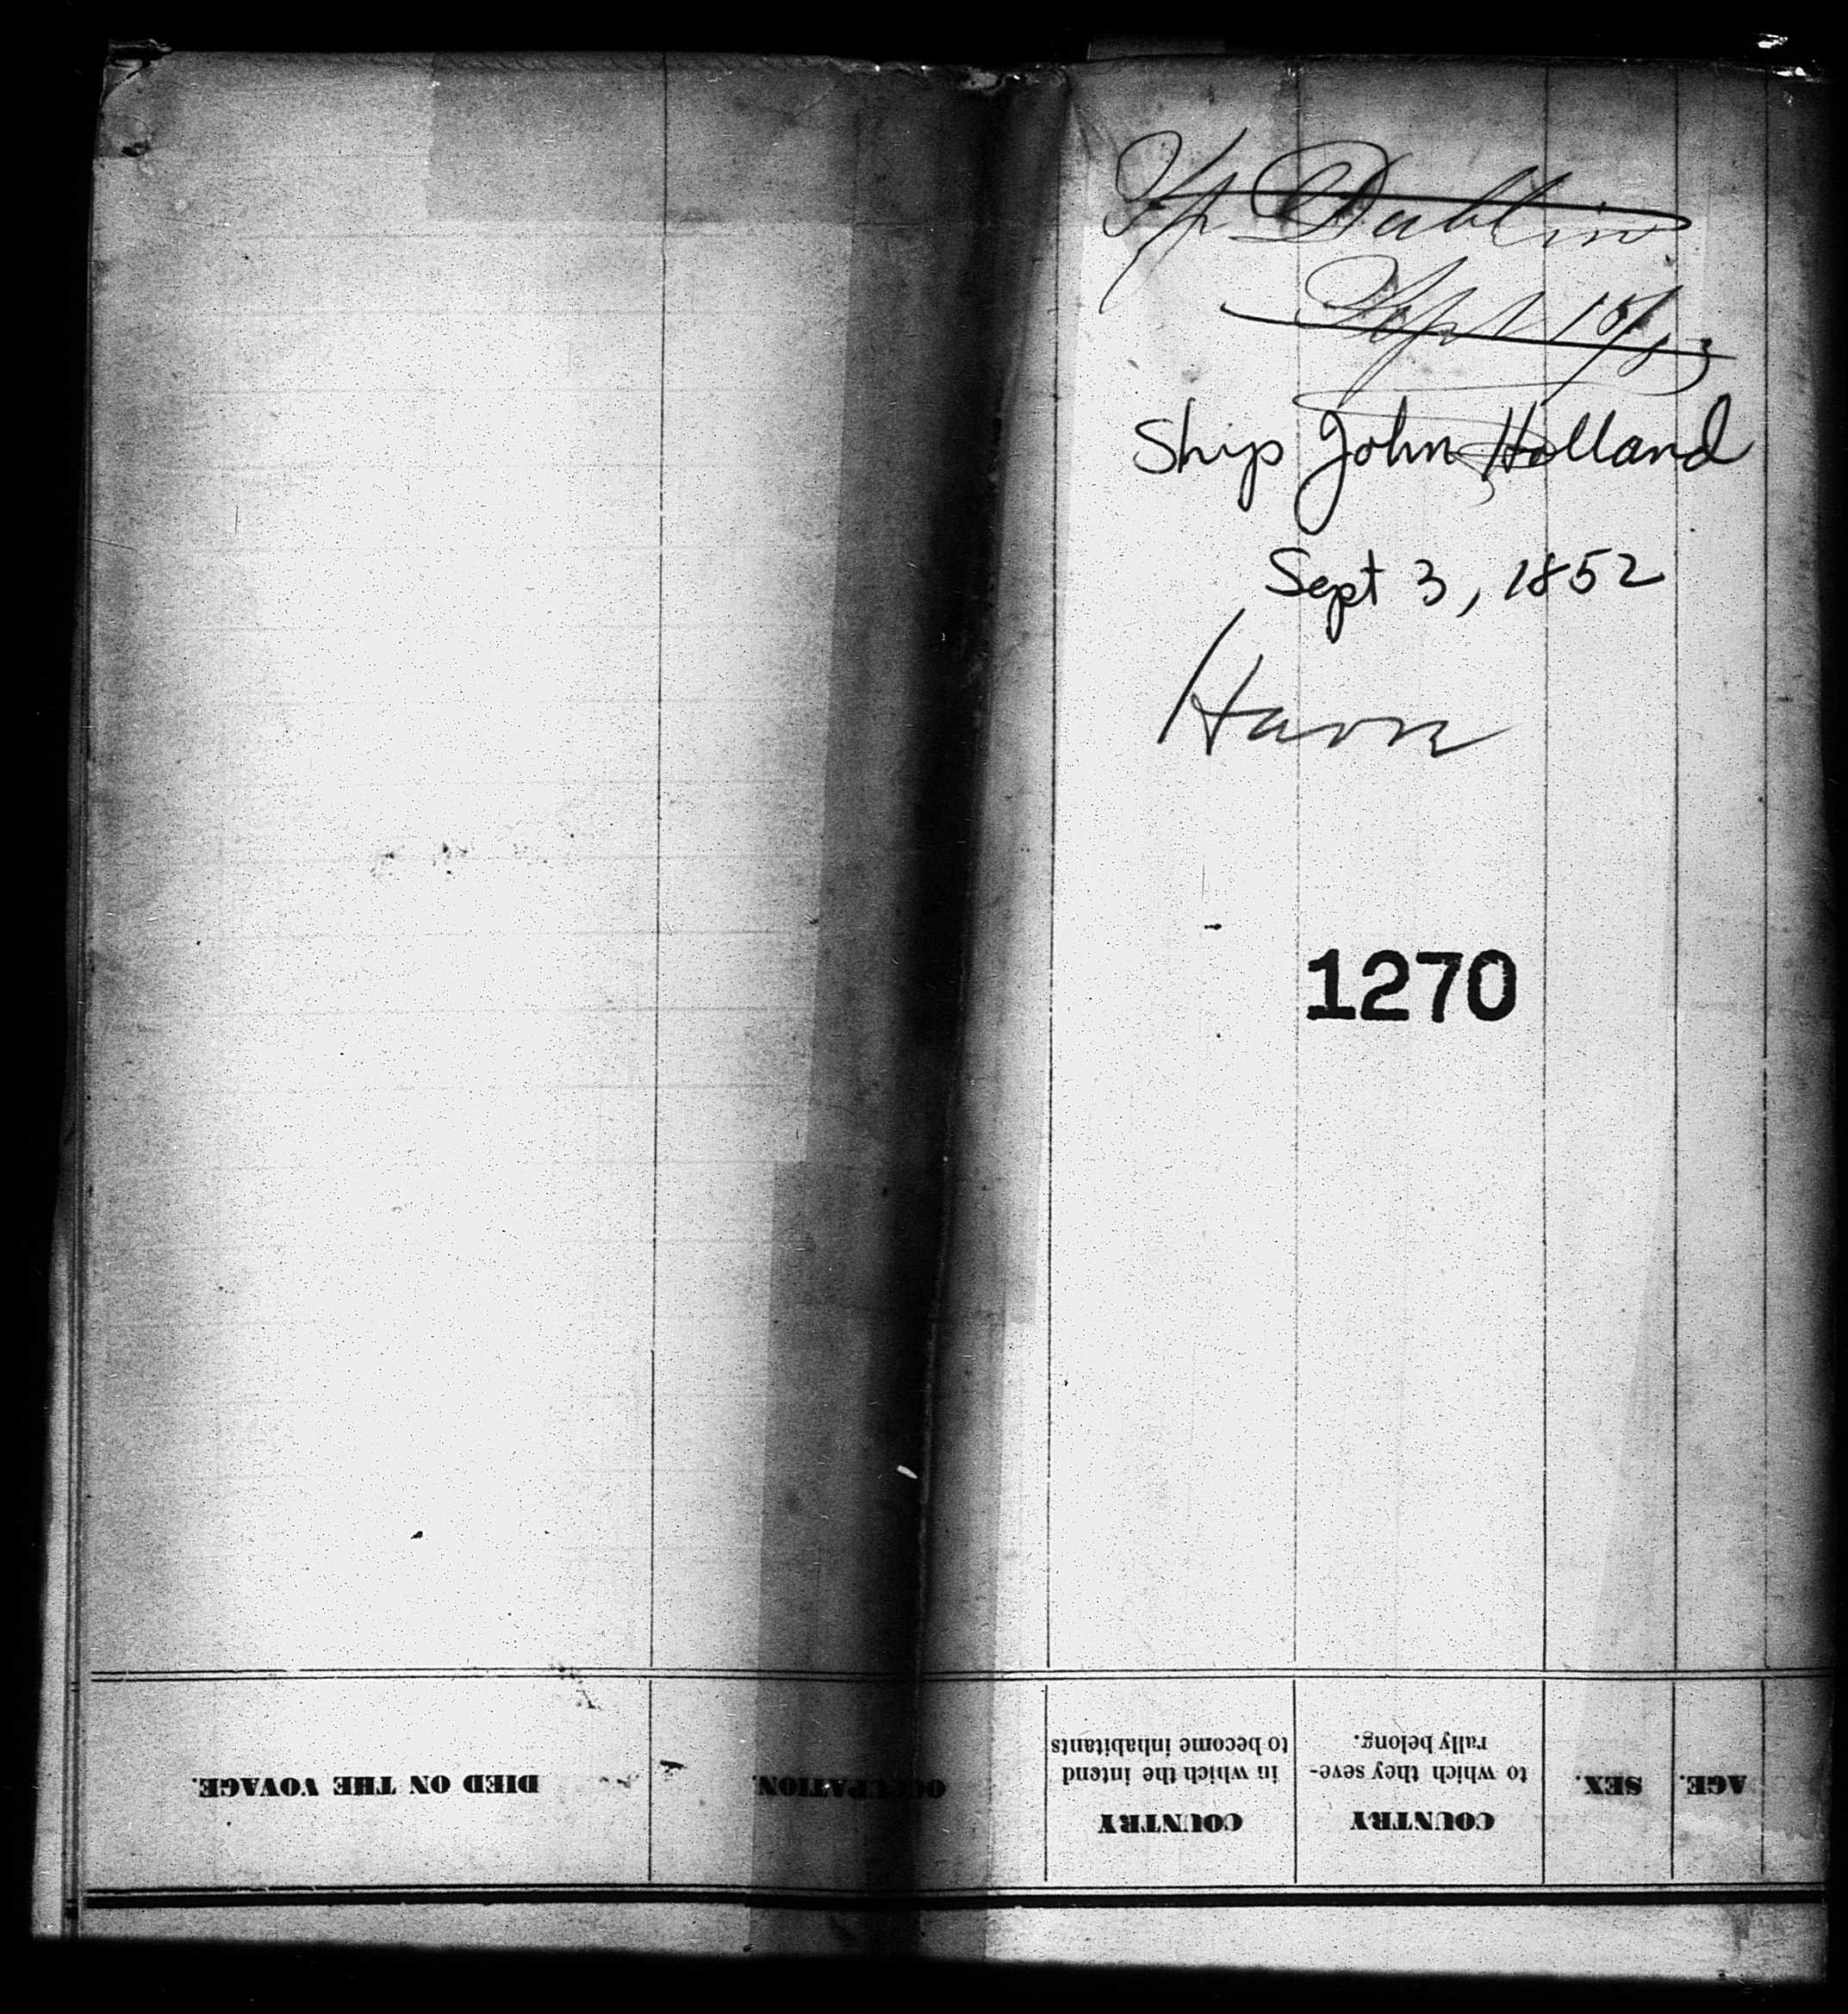 Dublin
Sept 15/53
Ship John Holland
Sept 3, 1852
Havre
1270
AGE.
SEX.
COUNTRY
to which they seve-
rally belong.
COUNTRY
in which the intend
to become inhabitants
OCCUPATION.
DIED ON THE VOYAGE.